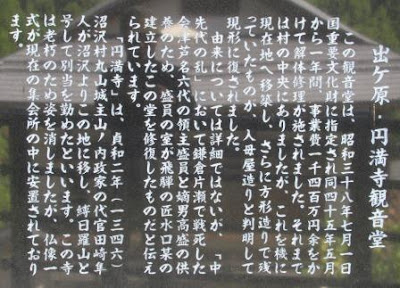 出ケ原・円満寺観音堂
この観音堂は、昭和三十八年七月一日
国重要文化財に指定され同四十五年五月
から一年間、事業費一千四百万円余をか
けて解体修理が施されました。それまで
は村の中央にありましたが、これを機に
現在地へ移築し、さらに方形造りで残
っていたものが、入母屋造りと判明して
現形に復されました。
由来については詳細ではないが、「中
先代の乱」において鎌倉片瀬で戦死した
会津芦名六代の領主盛員と嫡男高盛の供
養のため、盛員の室が飛騨の匠水口某の
建立したこの堂を修復したものだと伝え
られています。
「円満寺」は、貞和二年(一三四六)
沼沢村丸山城主山ノ内政家の代官田崎隼
人が沼沢よりこの地に移し、絳日羅山と
号して別当を勤めたといいます。この寺
は老朽のため姿を消しましたが、仏像一
式が現在の集会所の中に安置されており
ます。